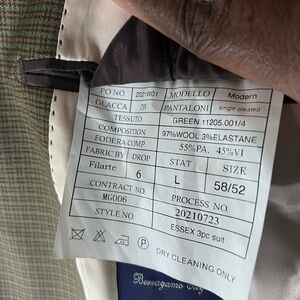 PO NO 2021W01 MODELLO Modern
GIACCA 2B PANTALONI single pleated
TESSUTO GREEN 11205.001/4
COMPOSITION 97%WOOL 3%ELASTANE
FODERA COMP 55%PA, 45%VI
FABRIC BY DROP STAT SIZE
Filarte 6 L 58/52
CONTRACT NO PROCESS NO.
MG006 20210723
STYLE NO ESSEX 3pc suit
P DRY CLEANING ONLY